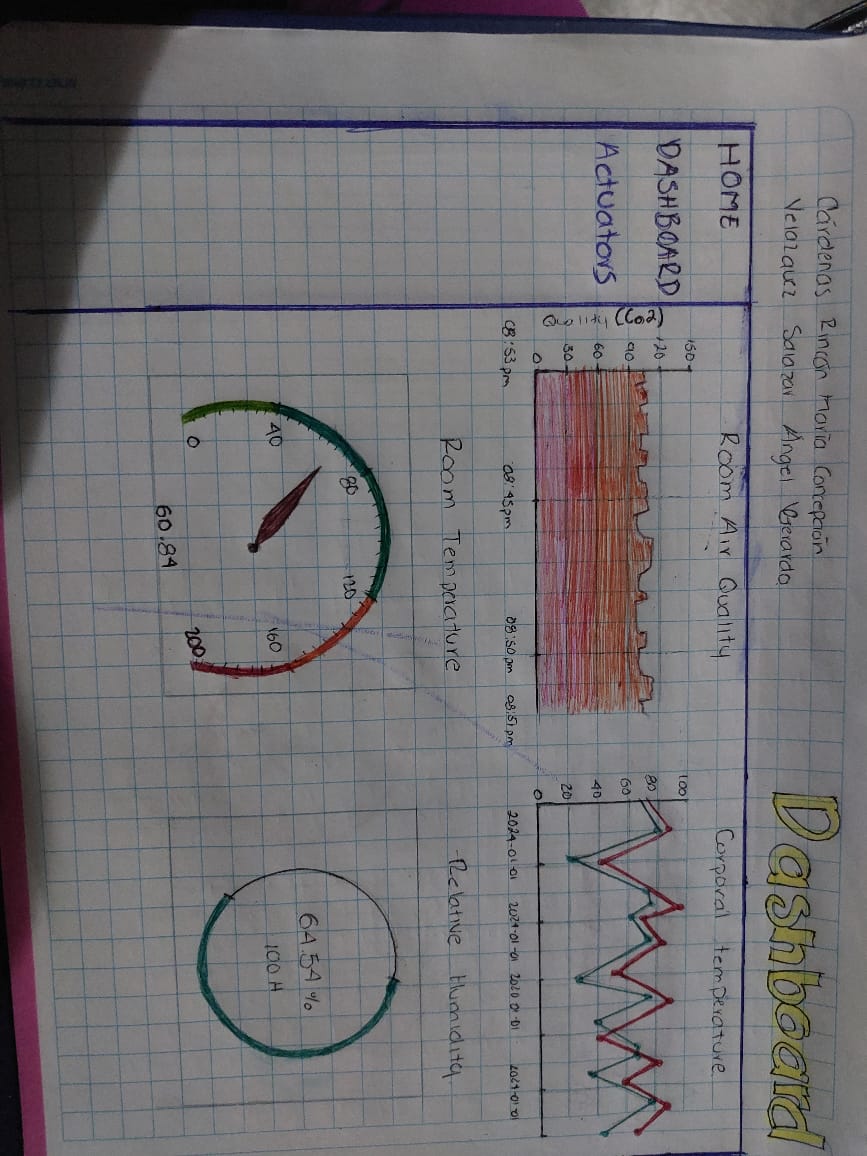 Cárdenas Rincón María Concepción
Velazquez Salazar Angel Gerardo
Dashboard
HOME
DASHBOARD
Actuators
Room Air Quality
(Co2)
150
120
90
60
30
0
08:53 pm
08:45 pm
08:50 pm
08:51 pm
Corporal temperature
100
80
60
40
20
0
2024-01-01
2024-01-01
2024-01-01
Room Temperature
0
40
80
120
160
200
60.84
Relative Humidity
64.54 %
100 H